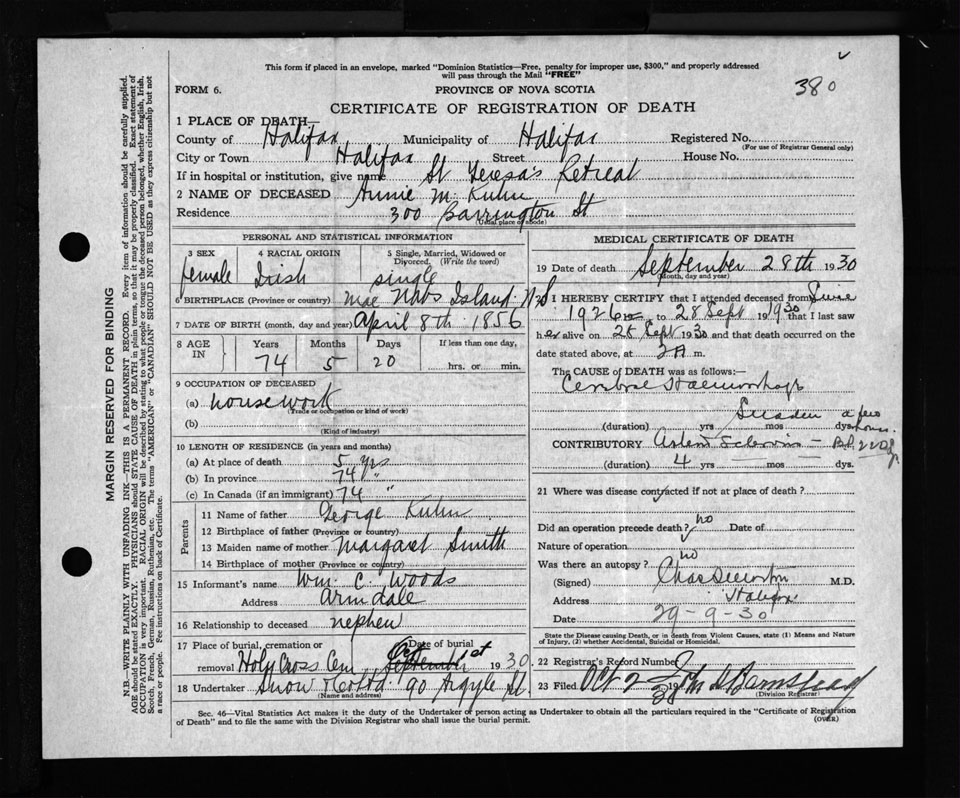 This form if placed in an envelope, marked "Dominion Statistics—Free, penalty for improper use, $300," and properly addressed
will pass through the Mail "FREE"
380
FORM 6.
PROVINCE OF NOVA SCOTIA
CERTIFICATE OF REGISTRATION OF DEATH
1 PLACE OF DEATH—
County of Halifax Municipality of Halifax Registered No.
(For use of Registrar General only)
City or Town Halifax Street House No.
If in hospital or institution, give name St Teresa's Retreat
2 NAME OF DECEASED Annie M. Kuhn
Residence 300 Barrington St
(Usual place of abode)
PERSONAL AND STATISTICAL INFORMATION
3 SEX 4 RACIAL ORIGIN 5 Single, Married, Widowed or Divorced. (Write the word)
female Irish single
6 BIRTHPLACE (Province or country) Mac Nabs Island N.S
7 DATE OF BIRTH (month, day and year) April 8th 1856
8 AGE IN Years Months Days If less than one day,
74 5 20 hrs. or min.
9 OCCUPATION OF DECEASED
(a) housework
(Trade or occupation or kind of work)
(b)
(Kind of industry)
10 LENGTH OF RESIDENCE (in years and months)
(a) At place of death 5 yrs
(b) In province 74 "
(c) In Canada (if an immigrant) 74 "
Parents
11 Name of father George Kuhn
12 Birthplace of father (Province or country)
13 Maiden name of mother Margaret Smith
14 Birthplace of mother (Province or country)
15 Informant's name Wm. C. Woods
Address Armdale
16 Relationship to deceased nephew
17 Place of burial, cremation or removal Holy Cross Cem Date of burial Oct 1st September 1930
18 Undertaker Snow & Co Ltd 90 Argyle St.
(Name and address)
MEDICAL CERTIFICATE OF DEATH
19 Date of death September 28th 1930
(Month, day and year)
I HEREBY CERTIFY that I attended deceased from June
1926 to 28 Sept 1930 that I last saw
her alive on Sept 1930 and that death occurred on the
date stated above, at m.
The CAUSE of DEATH was as follows:—
Cerebral Haemorrhage
Sudden a few hours.
(duration) yrs mos dys.
CONTRIBUTORY Sclerosis — B.P. 220
(duration) 4 yrs mos dys.
21 Where was disease contracted if not at place of death?
Did an operation precede death? no Date of
Nature of operation
Was there an autopsy? no
(Signed) Chas M.D.
Address Halifax
Date 29-9-30
State the Disease causing Death, or in death from Violent Causes, state (1) Means and Nature
of Injury, (2) whether Accidental, Suicidal or Homicidal.
22 Registrar's Record Number
23 Filed Oct 2 19 John Barnstead
(Division Registrar)
Sec. 46—Vital Statistics Act makes it the duty of the Undertaker of person acting as Undertaker to obtain all the particulars required in the "Certificate of Registration
of Death" and to file the same with the Division Registrar who shall issue the burial permit.
(OVER)
MARGIN RESERVED FOR BINDING
N.B.—WRITE PLAINLY WITH UNFADING INK—THIS IS A PERMANENT RECORD. Every item of information should be carefully supplied.
AGE should be stated EXACTLY. PHYSICIANS should STATE CAUSE OF DEATH in plain terms, so that it may be properly classified. Exact statement of
OCCUPATION is very important. RACIAL ORIGIN will be described by stating to what people or tongue the deceased person belonged, whether English, Irish,
Scotch, French, German, Russian, Ruthenian, etc. The terms "AMERICAN" or "CANADIAN" SHOULD NOT BE USED as they express citizenship but not
a race or people. See instructions on back of Certificate.